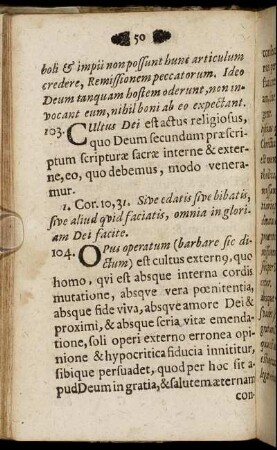 50
boli & impii non possunt hunc articulum
credere, Remissionem peccatorum. Ideo
Deum tanquam hostem oderunt, non in-
vocant eum, nihil boni ab eo expectant.
103. CUltus Dei est actus religiosus,
quo Deum secundum præscri-
ptum scripturæ sacræ interne & exter-
ne, eo, quo debemus, modo venera-
mur.
1. Cor. 10, 31. Sive edatis sive bibatis,
sive aliud qvid faciatis, omnia in glori-
am Dei facite.
104. OPus operatum (barbare sic di-
ctum) est cultus externꝰ, quo
homo, qvi est absque interna cordis
mutatione, absqve vera pœnitentia,
absque fide viva, absqve amore Dei &
proximi, & absque seria vitæ emenda-
tione, soli operi externo erronea opi-
nione & hypocritica fiducia innititur,
sibique persuadet, quod per hoc sit a-
pud Deum in gratia, & salutem æternam
con-